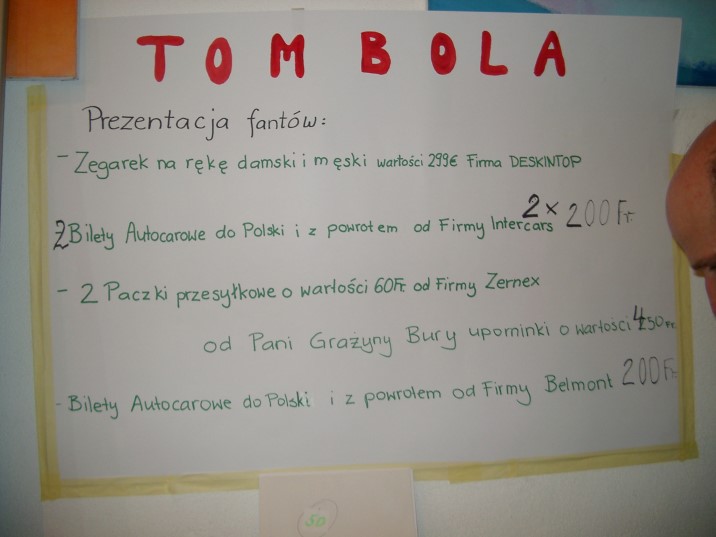 TOMBOLA
Prezentacja fantów:
- Zegarek na rękę damski i męski wartości 299€ Firma DESKINTOP
2 Bilety Autocarowe do Polski i z powrotem od Firmy Intercars 2 x 200 Fr.
- 2 Paczki przesyłkowe o wartości 60Fr. od Firmy Zernex
od Pani Grażyny Bury upominki o wartości 450 Fr.
- Bilety Autocarowe do Polski i z powrotem od Firmy Belmont 200 Fr.
50